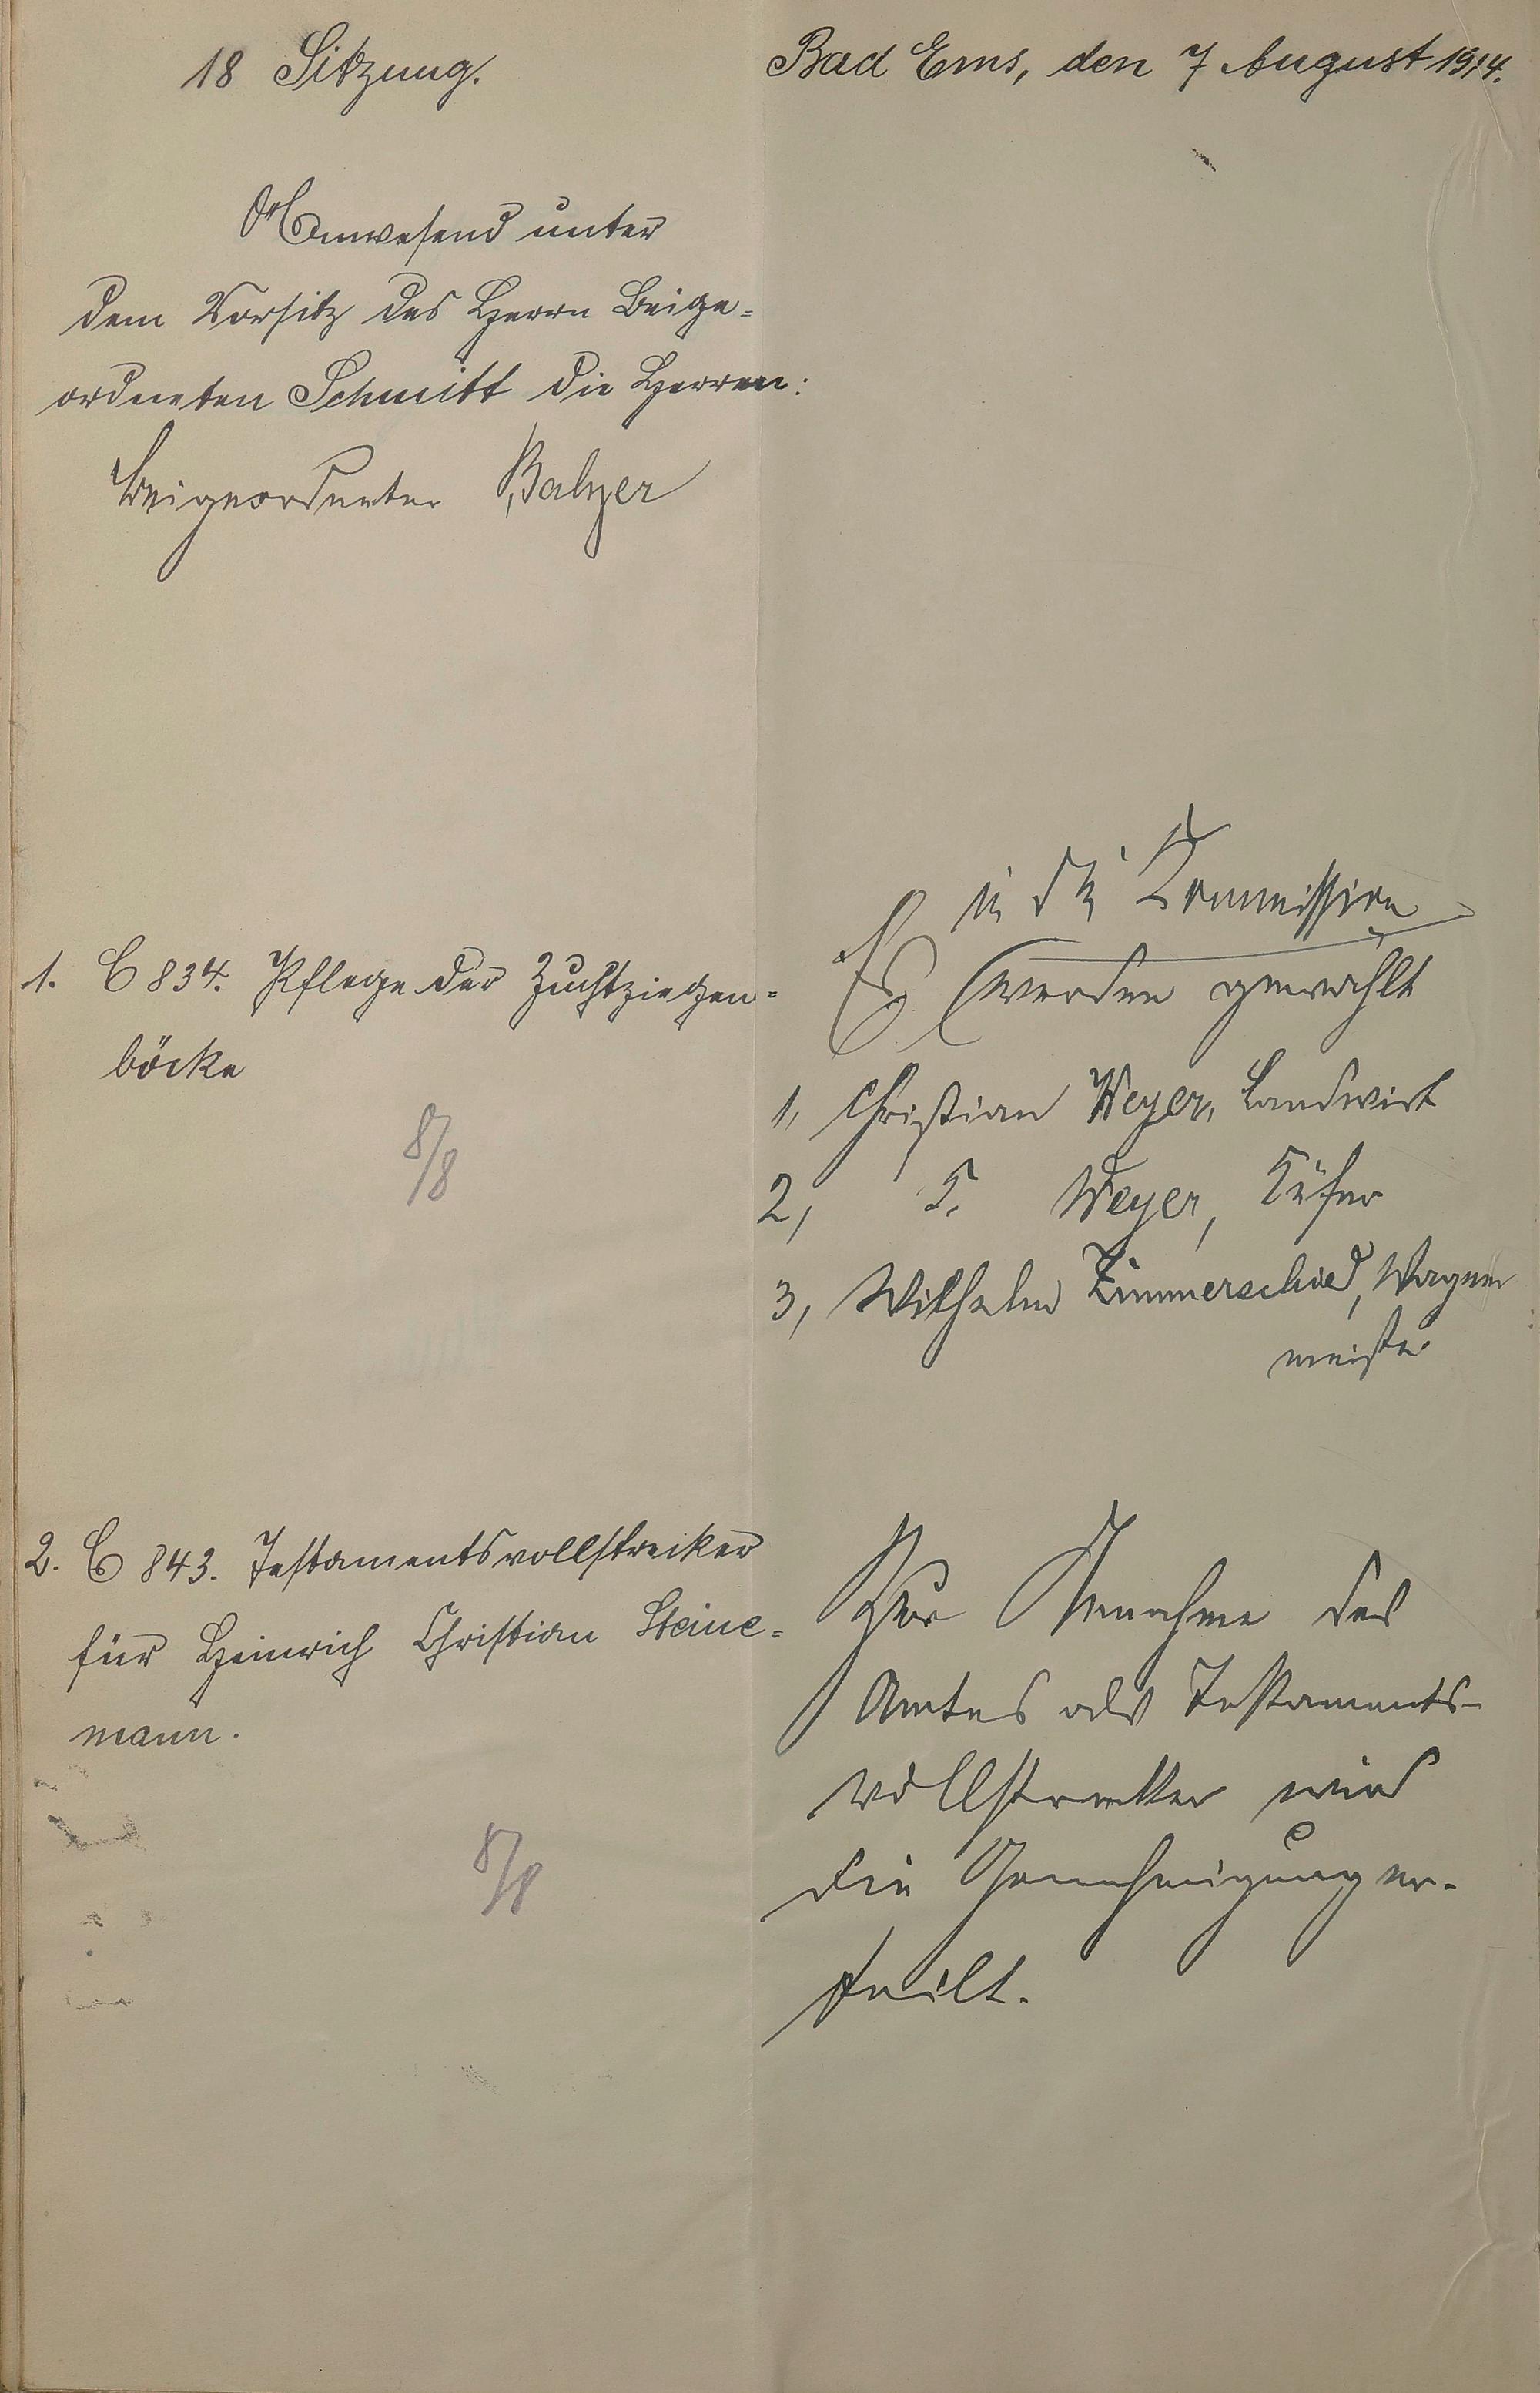 18 Sitzung.
Bad Ems, den 7 August 1914.
Anwesend unter
dem Vorsitz des Herrn Beige=
ordneten Schmitt die Herren:
Beigeordneter Balzer
1. C 834. Pflege der Zuchtziegen=
böcke
8/8
in die Kommission
Es werden gewählt
1, Christian Weyer, Landwirt
2, Weyer, Küfer
3, Wilhelm Zimmerschied, Wagner
meister
2. C 843. Testamentsvollstrecker
für Heinrich Christian Steine=
mann.
8/8
Zur Annahme des
Amtes als Testaments-
vollstrecker wird
die Genehmigung er-
teilt.